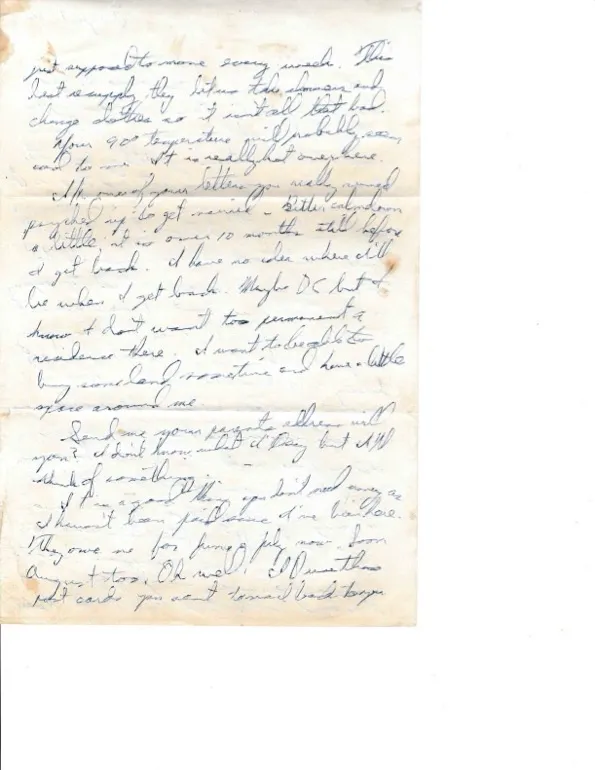 just supposed to move every week. This
last resupply they let us take showers and
change clothes so it isn't all that bad.
Your 90° temperature will probably seem
cool to me. It is really hot over here.
In one of your letters you really
psyched up to get married - Better calm down
a little, it is over 10 months still before
I get back. I have no idea where I'll
be when I get back. Maybe DC but I
know I don't want too permanent a
residence there. I want to be able to
buy some land sometime and have a little
space around me
Send me your parents address will
you? I don't know what I'll say but I'll
think of something.
It is a good thing you don't need money as
I haven't been paid since I've been here.
They owe me for June & July now. Soon
August too. Oh well. I'll use those
post cards you sent to mail back to you